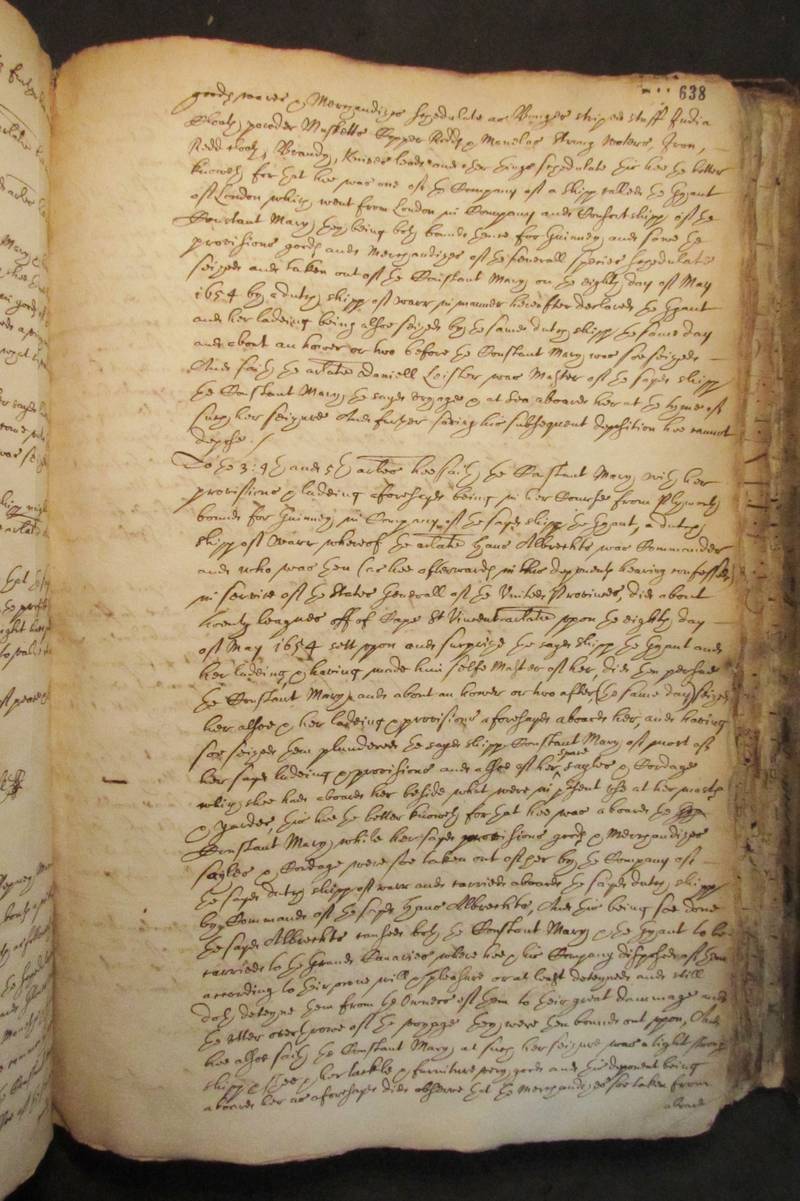 638
goods wares & Merchandizes schedulate as Bouges striped stuff India
Cloath, powder Musketts Copper Rodds & Manelas strong waters, Iron,
Redd cloth, Brandy, Knives beads and other things schedulate this hee the better
knoweth for that hee was one of the Company of a shipp called the Gyant
of London which went from London in Company and Consort shipp of the
Constant Mary they being both bounde thence for Guinney, and sawe the
provisions goods and Merchandizes of the severall species schedulate
seized and taken out of the Constant Mary on the eighth day of May
1654 by a dutch shipp of warr in manner hereafter declared the Gyant
and her ladeing being alsoe seized by the same dutch shipp the same day
and about an hower or two before the Constant Mary was soe seized
And saith the arlate daniell Leisler was Master of the sayd shipp
the Constant Mary the sayd voyage & at Sea aboard her at the tyme of
such her seizure And further saving his subsequent deposition hee cannot
depose./
To the 3: 4th and 5th articles hee saith the Constant Mary with her
provisions & ladeing aforesayd being in her Course from Plymouth
bound for Guinney in Company of the sayd shipp the Gyant, a dutch
shipp of Warr whereof the arlate Hans Albrechts was Commander
and who was then (as hee afterwards in this deponents hearing confessed)
in service of the States Generall of the United Provinces, did about
twenty leagues off of Cape St Vincent arlate uppon the eighth day
of May 1654 sett uppon and surprize the sayd shipp the Gyant and
her ladeing, & having made him selfe Master of her, did then pursue
the Constant Mary, and about an hower or two after (the same day) seized
her alsoe & her ladeing & provisions aforesayd aboard her, and having
soe seized them plundered the sayd shipp Constant Mary of most of
her sayd ladeing & provisions and alsoe of her some sayles & Cordage
which shee had aboard her beside what were in present use at her masts
& yardes, this hee the better knoweth for that hee was aboard the
Constant Mary while her sayd provisions goods & Merchandizes
sayles & Cordage were soe taken out of her by the Company of
the sayd dutch shipp of warr and carried aboard the sayd dutch shipp
by Command of the sayd Hans Albrechts, And this being soe done
the sayd Albrechts caused both the Constant Mary & the Gyant to be
carried to the Grand Canaries where hee & his Company disposed of them
according to their owne will & pleasure or at least deteyned and still
doth deteyne them from the Owners of them to their great dammage and
the utter overthrowe of the voyage they were then bound out uppon, And
hee alsoe saith the Constant Mary at such her seizure was a tight strong
shipp & shee & her tackle & furniture very good and this deponent being
aboard her as aforesayd did observe that the Merchandizes soe taken from
aboard